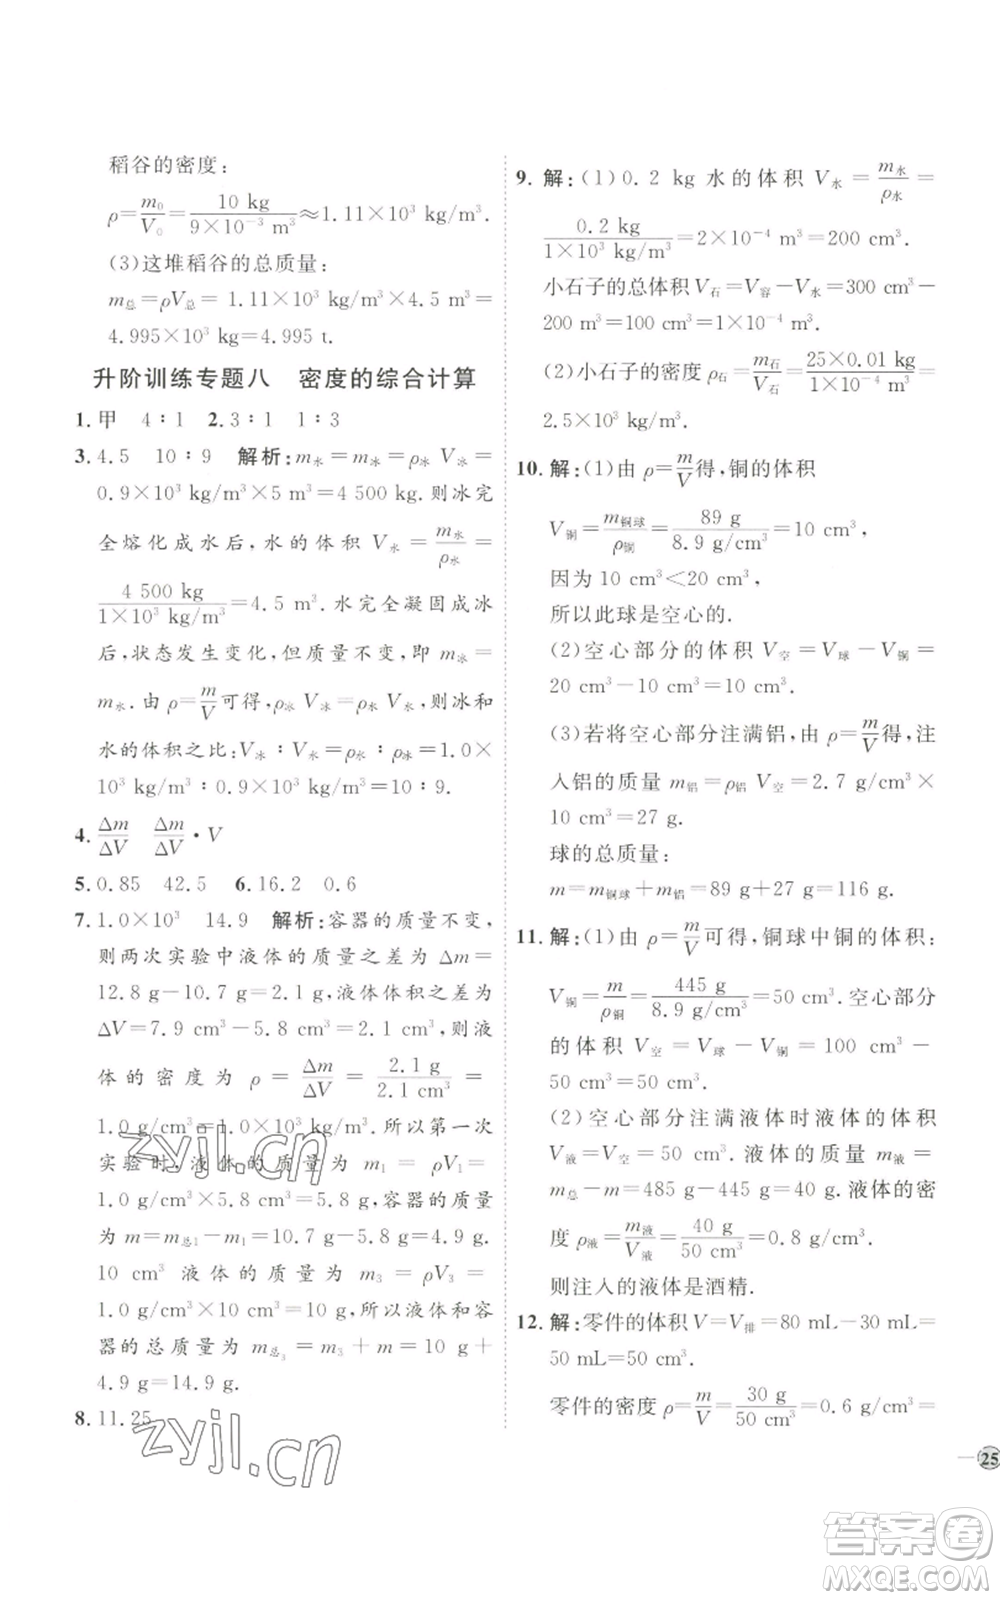 稻谷的密度:
ρ=m₀/V₀=10 kg/(9×10⁻³ m³)≈1.11×10³ kg/m³.
(3)这堆稻谷的总质量:
m总=ρV总= 1.11×10³ kg/m³×4.5 m³=
4.995×10³ kg=4.995 t.
升阶训练专题八 密度的综合计算
1.甲 4∶1 2.3∶1 1∶3
3.4.5 10∶9 解析:m水=m冰=ρ冰 V冰=
0.9×10³ kg/m³×5 m³=4 500 kg.则冰完
全熔化成水后,水的体积 V水=m水/ρ水=
4 500 kg/(1×10³ kg/m³)=4.5 m³.水完全凝固成冰
后,状态发生变化,但质量不变,即 m冰=
m水.由 ρ=m/V可得,ρ冰 V冰=ρ水 V水,则冰和
水的体积之比:V冰∶V水=ρ水∶ρ冰=1.0×
10³ kg/m³∶0.9×10³ kg/m³=10∶9.
4.Δm/ΔV Δm/ΔV·V
5.0.85 42.5 6.16.2 0.6
7.1.0×10³ 14.9 解析:容器的质量不变,
则两次实验中液体的质量之差为 Δm=
12.8 g-10.7 g=2.1 g,液体体积之差为
ΔV=7.9 cm³-5.8 cm³=2.1 cm³,则液
体的密度为 ρ=Δm/ΔV=2.1 g/2.1 cm³=
1.0 g/cm³=1.0×10³ kg/m³.所以第一次
实验时,液体的质量为 m₁=ρV₁=
1.0 g/cm³×5.8 cm³=5.8 g,容器的质量
为 m=m总₁-m₁=10.7 g-5.8 g=4.9 g.
10 cm³ 液体的质量为 m₃=ρV₃=
1.0 g/cm³×10 cm³=10 g,所以液体和容
器的总质量为 m总₃=m₃+m=10 g+
4.9 g=14.9 g.
8.11.25
9.解:(1)0.2 kg 水的体积 V水=m水/ρ水=
0.2 kg/(1×10³ kg/m³)=2×10⁻⁴ m³=200 cm³.
小石子的总体积 V石=V容-V水=300 cm³-
200 m³=100 cm³=1×10⁻⁴ m³.
(2)小石子的密度 ρ石=m石/V石=25×0.01 kg/(1×10⁻⁴ m³)=
2.5×10³ kg/m³.
10.解:(1)由 ρ=m/V得,铜的体积
V铜=m铜球/ρ铜=89 g/(8.9 g/cm³)=10 cm³,
因为 10 cm³<20 cm³,
所以此球是空心的.
(2)空心部分的体积 V空=V球-V铜=
20 cm³-10 cm³=10 cm³.
(3)若将空心部分注满铝,由 ρ=m/V得,注
入铝的质量 m铝=ρ铝 V空=2.7 g/cm³×
10 cm³=27 g.
球的总质量:
m=m铜球+m铝=89 g+27 g=116 g.
11.解:(1)由 ρ=m/V可得,铜球中铜的体积:
V铜=m/ρ铜=445 g/(8.9 g/cm³)=50 cm³.空心部分
的体积 V空=V球-V铜=100 cm³-
50 cm³=50 cm³.
(2)空心部分注满液体时液体的体积
V液=V空=50 cm³.液体的质量 m液=
m总-m=485 g-445 g=40 g.液体的密
度 ρ液=m液/V液=40 g/50 cm³=0.8 g/cm³.
则注入的液体是酒精.
12.解:零件的体积 V=V排=80 mL-30 mL=
50 mL=50 cm³.
零件的密度 ρ=m/V=30 g/50 cm³=0.6 g/cm³=
25
zyjl.cn
zyjl.cn
答案卷
MXQE.COM